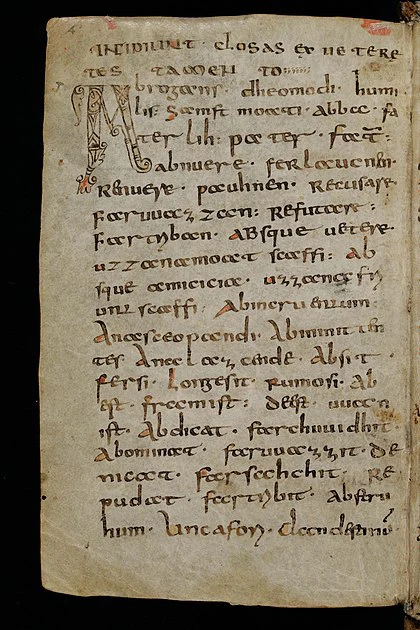 INCIPIUNT · CLOSAS EX UETERE
TES TAMEN TO
Abrogans · dheomodi · humi
lis · samft moati · abba · fa
ter lih · pater · fat̄
abnuere · ferlaucnen
renuere · pauhnen · recusare
faruuazzan: refutare:
fartriban · absque uetere
uzzana moat scaffi: ab
sque amicicia · uzzana fri
untscaffi ·
abminiten
tes anelazende · absit
fersi · longe sit · rumo si · ab
est · fram ist: deest · uuan
ist · abdicat · farchuuidhit
abominat · faruuazzit · de
nicat · farsehchit · re
pudat · fartribit · abstru
sum · uncafori · clandestinū